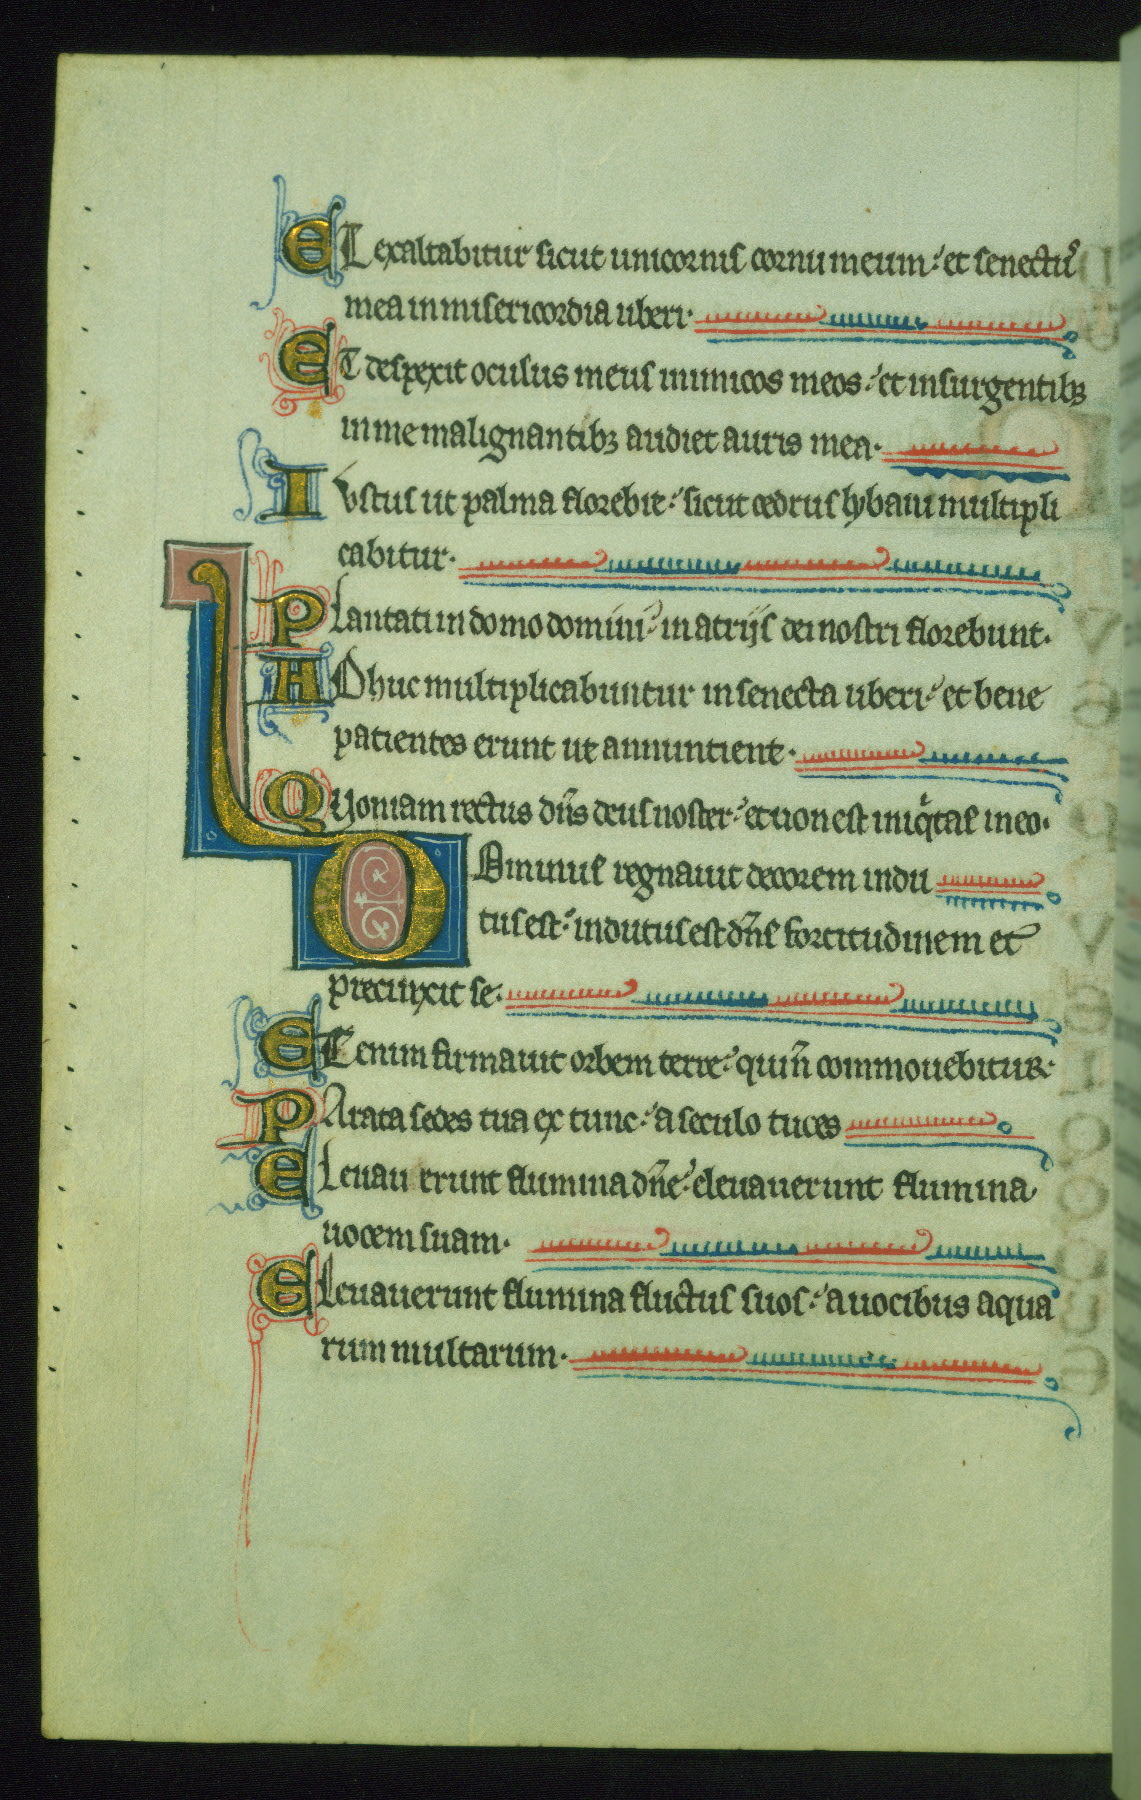 ET exaltabitur sicut unicornis cornu meum: et senectus
mea in misericordia uberi.
ET despexit oculus meus inimicos meos: et insurgentibꝫ
in me malignantibꝫ audiet auris mea.
IUstus ut palma florebit: sicut cedrus lybani multipli
cabitur.
PLantati in domo domini: in atrijs dei nostri florebunt.
ADhuc multiplicabuntur in senecta uberi: et bene
patientes erunt ut annuntient.
QUoniam rectus dñs deus noster: et non est iniqͥtas in eo.
DOminus regnauit decorem indu
tus est: indutus est dñs fortitudinem et
precinxit se.
ETenim firmauit orbem terre: qui ñ commouebitur.
PArata sedes tua ex tunc: a seculo tu es
ELeuauerunt flumina dñe: eleuauerunt flumina
uocem suam.
ELeuauerunt flumina fluctus suos: a uocibus aqua
rum multarum.